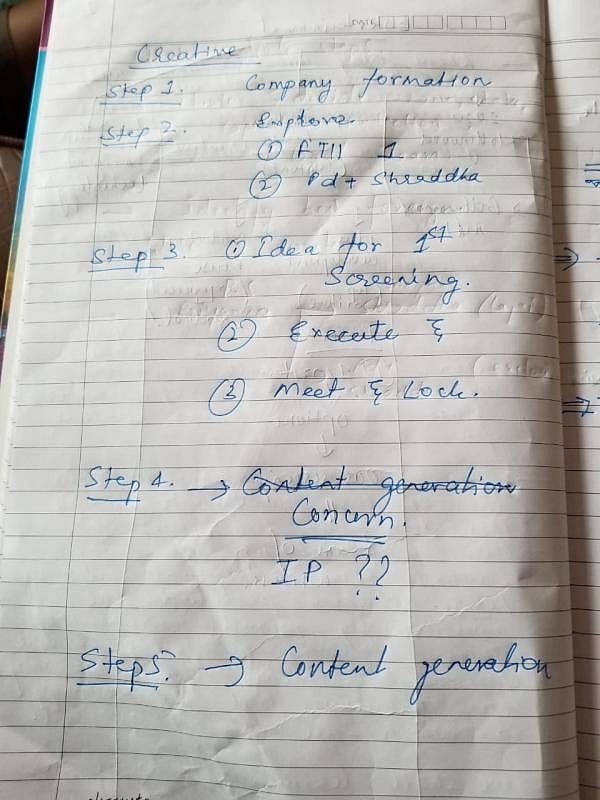 Creative
Step 1. Company formation
Step 2. Explore.
① FTII 1
② Pd + Shraddha
Step 3. ① Idea for 1st
Screening.
② Execute &
③ Meet & Lock.
Step 4. → Content generation
Concern.
IP ??
Step 5? → Content generation